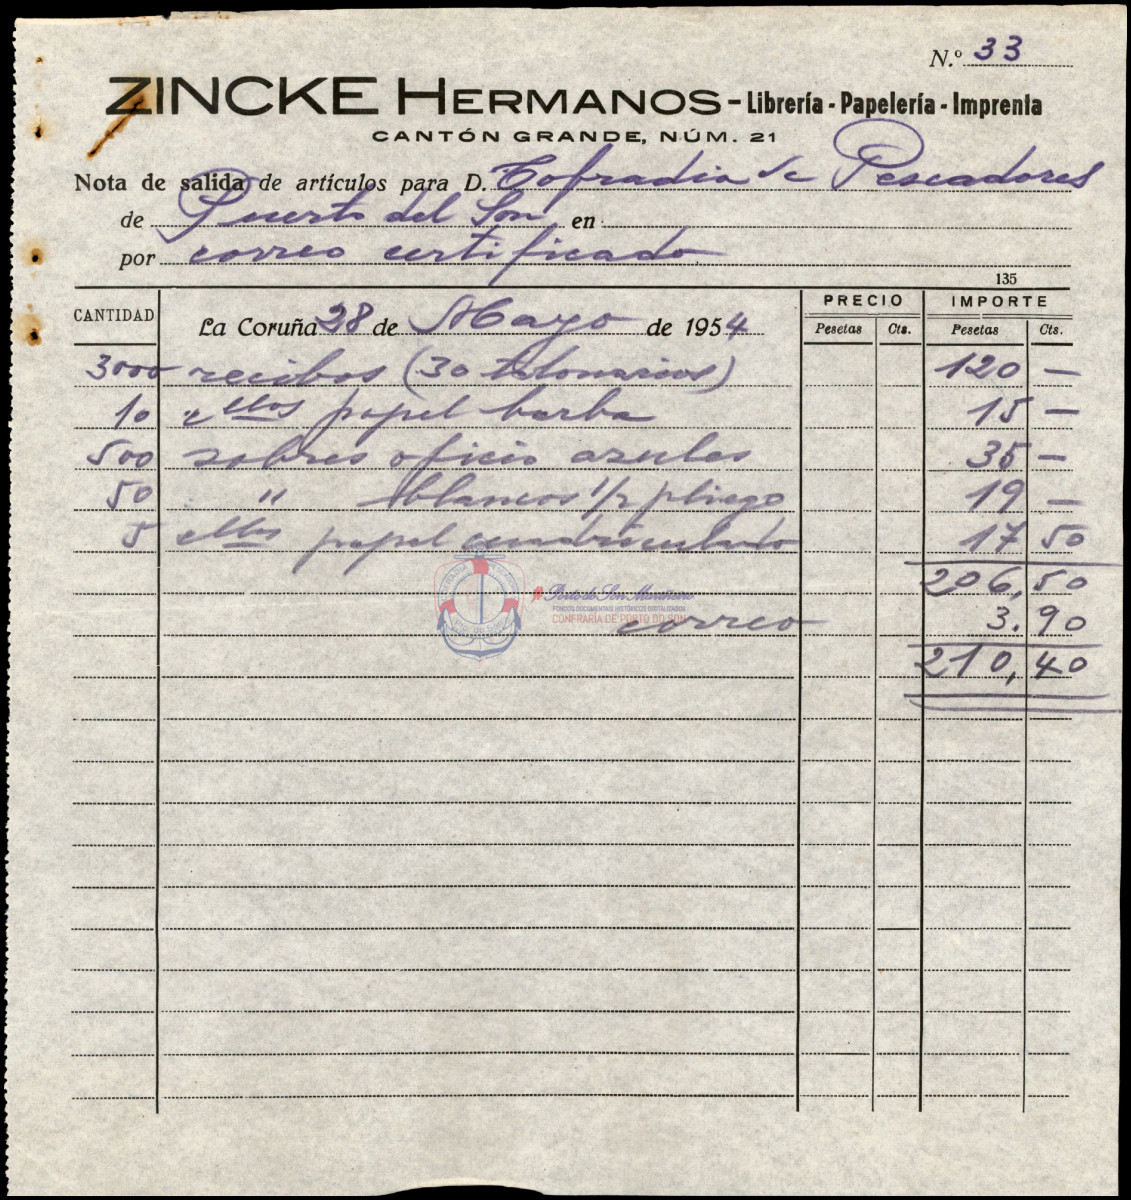 N.º 33
ZINCKE HERMANOS - Librería - Papelería - Imprenta
CANTÓN GRANDE, NÚM. 21
Nota de salida de artículos para D. Cofradia de Pescadores
de Puerto del Son en
por correo certificado
135
CANTIDAD La Coruña 28 de Mayo de 1954 PRECIO IMPORTE
Pesetas Cts. Pesetas Cts.
3000 recibos (30 talonarios) 120 —
10 cllos papel barba 15 —
500 sobres oficio azules 35 —
50 " blancos 1/2 pliego 19 —
5 cllos papel cuadriculado 17 50
206,50
Porto do Son Mariñeiro
FONDOS DOCUMENTAIS HISTÓRICOS DIXITALIZADOS
CONFRARÍA DE PORTO DO SON
correo 3.90
210,40